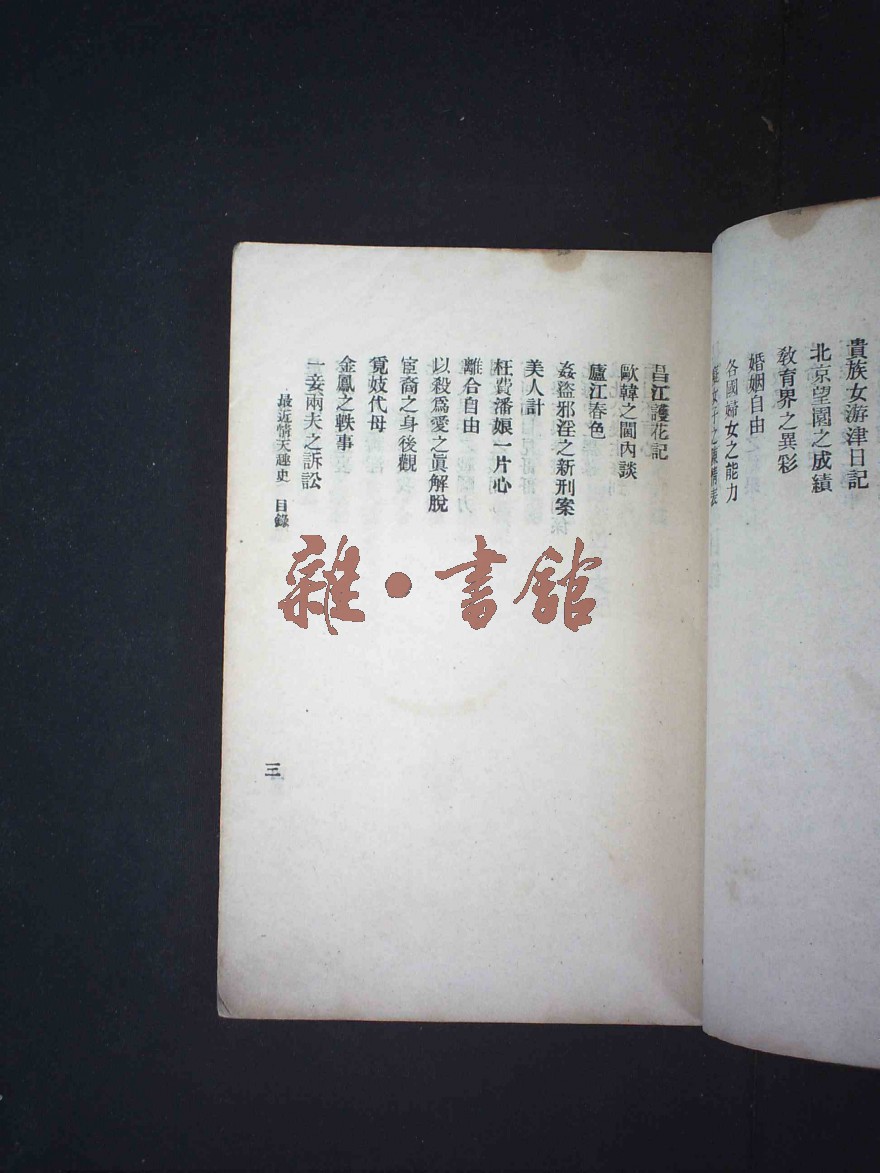 貴族女游津日記
北京望園之成績
教育界之異彩
婚姻自由
各國婦女之能力
女子之陳情表
昌江護花記
歐韓之閫內談
廬江春色
姦盜邪淫之新刑案
美人計
枉費潘娘一片心
離合自由
以殺爲愛之眞解脫
宦裔之身後觀
覓妓代母
金鳳之軼事
一妾兩夫之訴訟
最近情天趣史 目錄
三
雜·書館